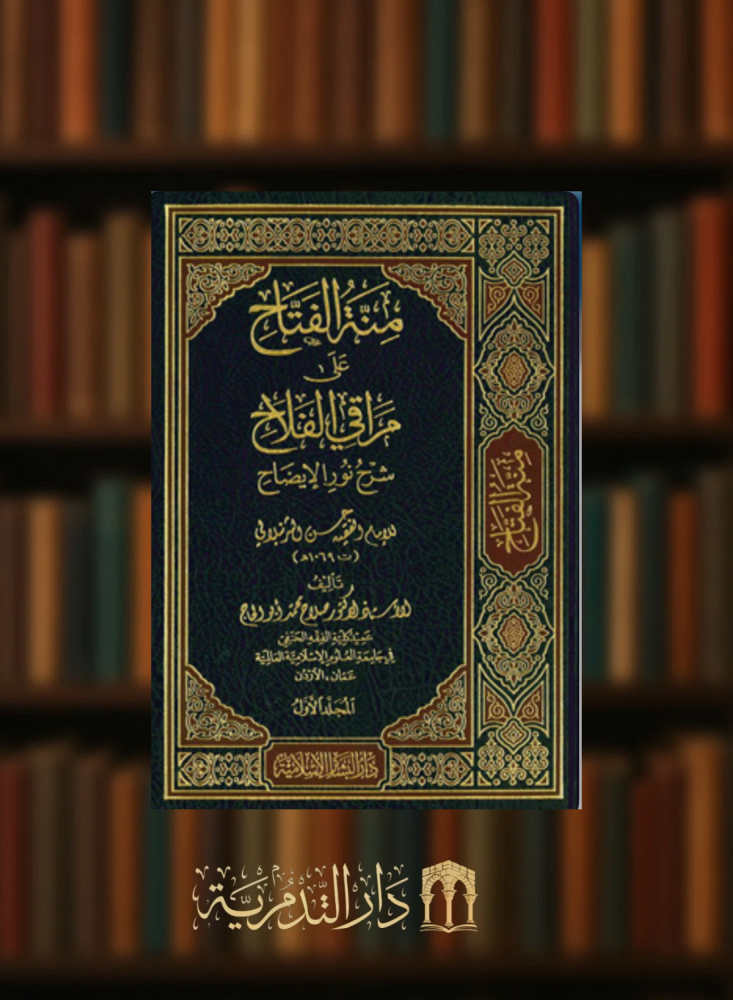 مِنَّةُ الْفَتَّاحِ
عَلَى
مَرَاقِي الْفَلَاحِ
شَرْحِ نُورِ الْإِيضَاحِ
للإمام الفقيه حسن الشرنبلالي
(ت ١٠٦٩هـ)
تَأْلِيفُ
الأستاذ الدكتور صلاح محمد أبو الحاج
عميد كلية الفقه الحنفي
في جامعة العلوم الإسلامية العالمية
عمان، الأردن
المجلد الأول
دار البشائر الإسلامية
منة الفتاح
دار التدمرية